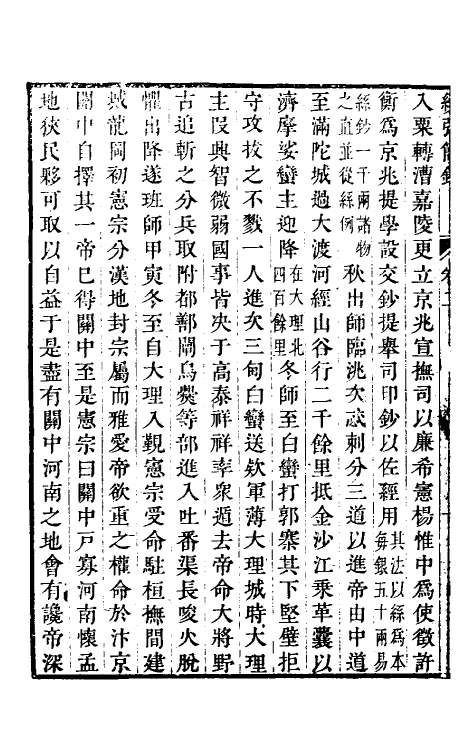 入粟轉漕嘉陵更立京兆宣撫司以廉希憲楊惟中為使徵許
衡為京兆提學設交鈔提舉司印鈔以佐經用其法以絲為本每銀五十兩易
絲鈔一千兩諸物之直並從絲例秋出師臨洮次忒剌分三道以進帝由中道
至滿陀城過大渡河經山谷行二千餘里抵金沙江乘革囊以
濟摩娑蠻主迎降在大理北四百餘里冬師至白蠻打郭寨其下堅壁拒
守攻拔之不戮一人進次三甸白蠻送欵軍薄大理城時大理
主段興智微弱國事皆决于高泰祥祥率衆遁去帝命大將野
古追斬之分兵取附都鄯闡烏爨等部進入吐番渠長唆火脫
懼出降遂班師甲寅冬至自大理入覲憲宗受命駐桓撫間建
城龍岡初憲宗分漢地封宗屬而雅愛帝欲重之權命於汴京
關中自擇其一帝已得關中至是憲宗曰關中戶寡河南懷孟
地狹民夥可取以自益于是盡有關中河南之地會有讒帝深